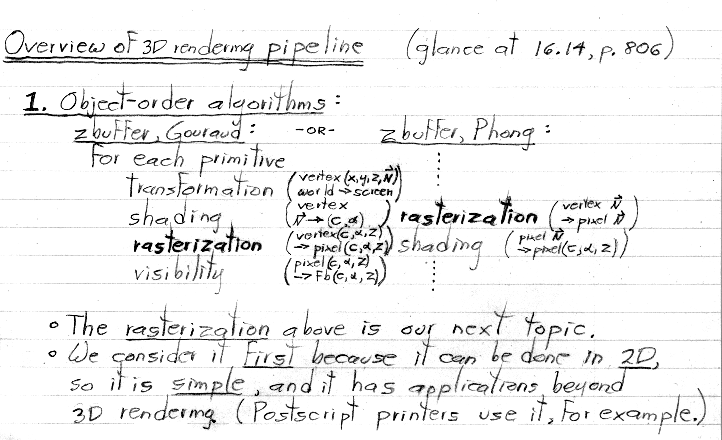 Overview of 3D rendering pipeline (glance at 16.14, p. 806)
1. Object-order algorithms:
z buffer, Gouraud: -OR- z buffer, Phong:
for each primitive
transformation (vertex (x,y,z,N⃗) world → screen)
shading (vertex N⃗ → (c,α)) rasterization (vertex N⃗ → pixel N⃗)
rasterization (vertex(c,α,z) → pixel (c,α,z)) shading (pixel N⃗ → pixel(c,α,z))
visibility (pixel(c,α,z) → Fb(c,α,z))
• The rasterization above is our next topic.
• We consider it first because it can be done in 2D,
so it is simple, and it has applications beyond
3D rendering. (Postscript printers use it, for example.)